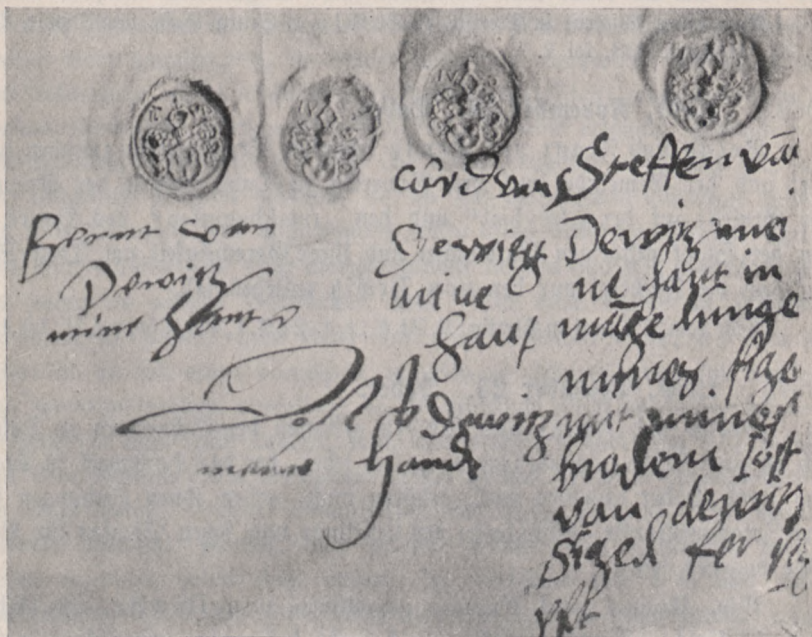 Bernt van
Dewitz
mine hant
Cord van
Dewitz
mine
hant
Jost v Dewitz
manu hande
Steffen van
Dewitz mi
ne hant in
mangelunge
mines sige
mit mines
brodern Jost
van dewitz
Sigel fer